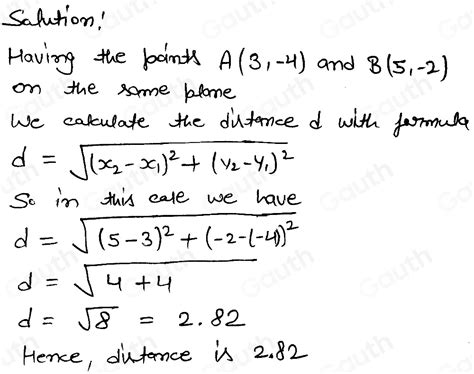 Solution:
Having the points A(3,-4) and B(5,-2)
on the same plane
We calculate the distance d with formula
d = √((x₂-x₁)²+(y₂-y₁)²)
So in this case we have
d = √((5-3)²+(-2-(-4))²)
d = √(4+4)
d = √8 = 2.82
Hence, distance is 2.82